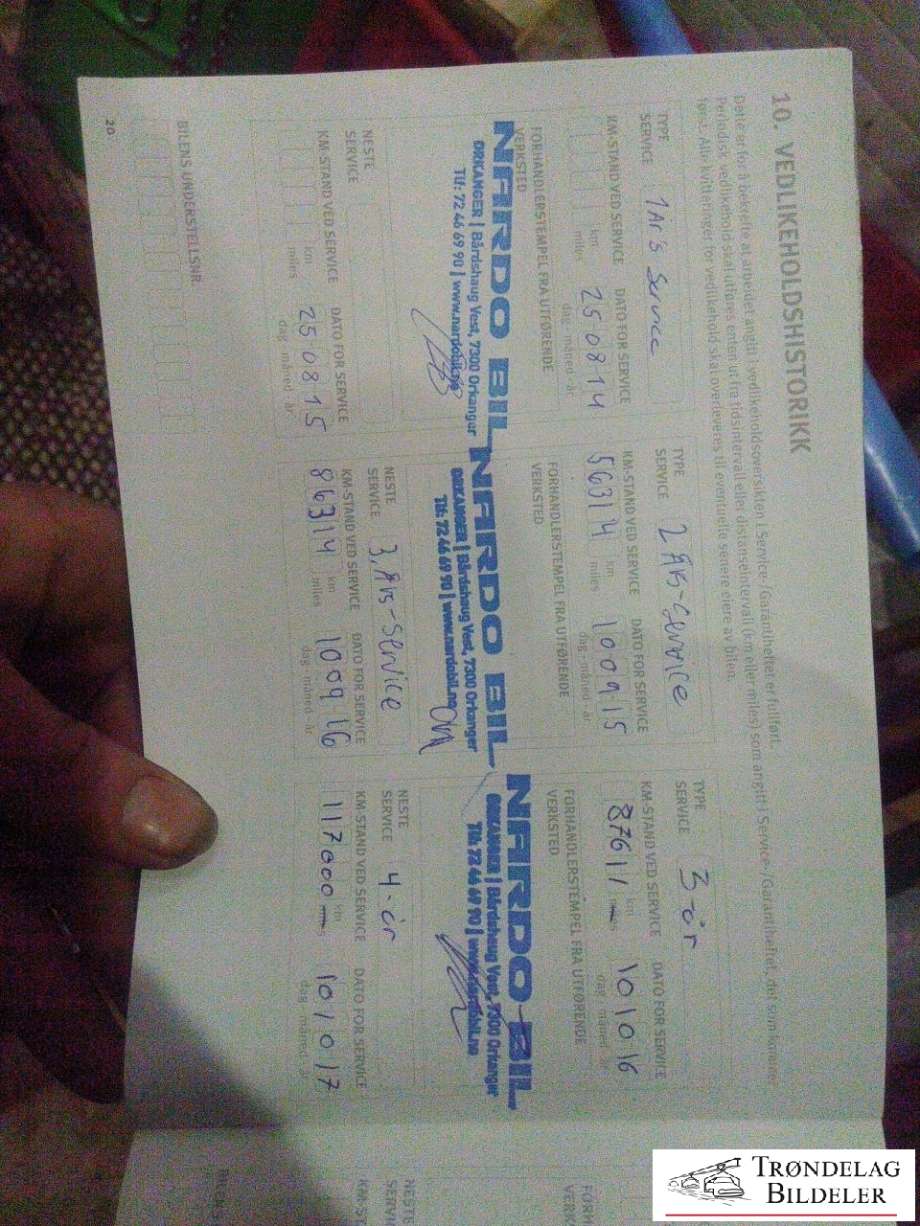 10. VEDLIKEHOLDSHISTORIKK
Dette er for å bekrefte at arbeidet angitt i vedlikeholdsoversikten i Service-/Garantihefter er fullført.
Periodisk vedlikehold skal utføres enten ut fra tidsintervall eller distanseintervall (km eller miles) som angitt i Service-/Garantiheftet, det som kommer
først. Alle kvitteringer for vedlikehold skal overleveres til eventuelle senere eiere av bilen.
TYPE
SERVICE 1 År's Service
KM-STAND VED SERVICE
km
miles
DATO FOR SERVICE
25 08 14
dag - måned - år
FORHANDLERSTEMPEL FRA UTFØRENDE
VERKSTED
NARDO BIL
ORKANGER | Bårdshaug Vest, 7300 Orkanger
Tlf: 72 46 69 90 | www.nardobil.no
NESTE
SERVICE
KM-STAND VED SERVICE
km
miles
DATO FOR SERVICE
25 08 15
dag - måned - år
BILENS UNDERSTELLSNR.
20
TYPE
SERVICE 2 ÅRS-Service
KM-STAND VED SERVICE
56314
km
miles
DATO FOR SERVICE
10 09 15
dag - måned - år
FORHANDLERSTEMPEL FRA UTFØRENDE
VERKSTED
NARDO BIL
ORKANGER | Bårdshaug Vest, 7300 Orkanger
Tlf: 72 46 69 90 | www.nardobil.no
NESTE
SERVICE 3, ÅRS-Service
KM-STAND VED SERVICE
86314
km
miles
DATO FOR SERVICE
10 09 16
dag - måned - år
TYPE
SERVICE 3-år
KM-STAND VED SERVICE
87611 -
km
miles
DATO FOR SERVICE
10 10 16
dag - måned - år
FORHANDLERSTEMPEL FRA UTFØRENDE
VERKSTED
NARDO BIL
ORKANGER | Bårdshaug Vest, 7300 Orkanger
Tlf: 72 46 69 90 | www.nardobil.no
NESTE
SERVICE 4-år
KM-STAND VED SERVICE
117000 -
km
DATO FOR SERVICE
10 10 17
dag - måned - år
NESTE
TRØNDELAG
BILDELER